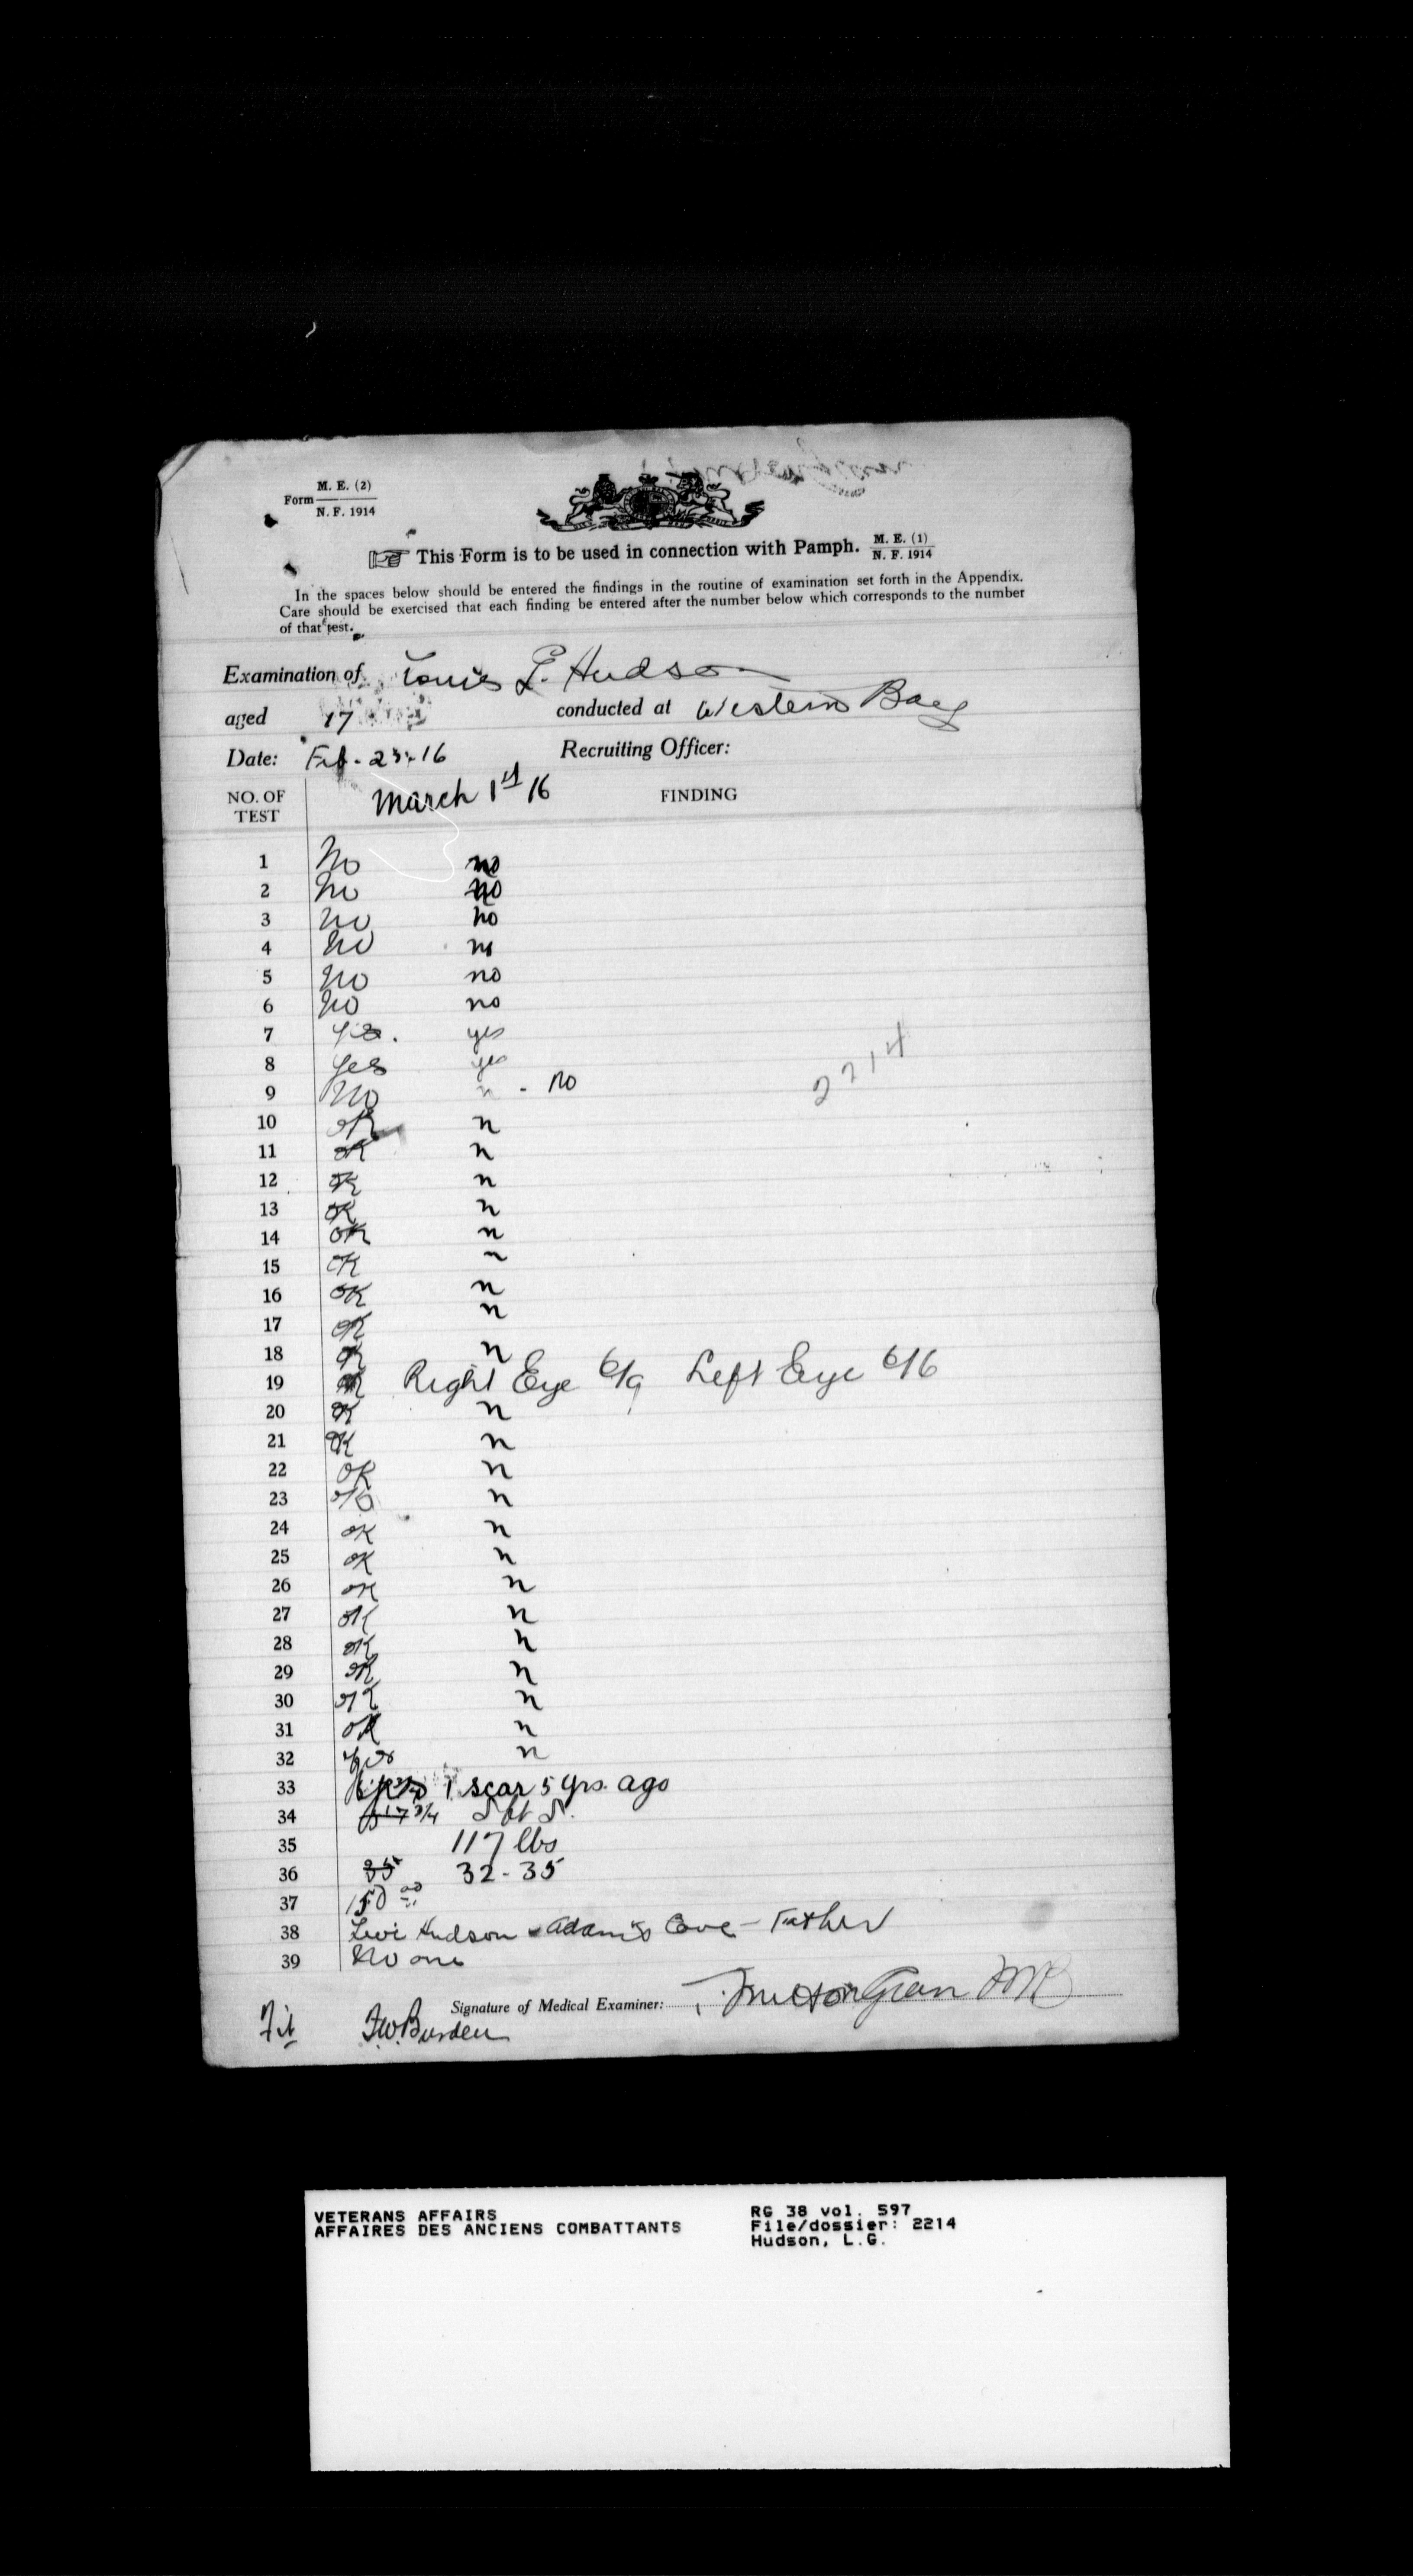 Form M. E. (2) N. F. 1914
This Form is to be used in connection with Pamph. M. E. (1) N. F. 1914
In the spaces below should be entered the findings in the routine of examination set forth in the Appendix.
Care should be exercised that each finding be entered after the number below which corresponds to the number
of that test.
Examination of Louis G. Hudson
aged 17 conducted at Western Bay
Date: Feb. 23. 16 Recruiting Officer:
NO. OF TEST March 1st 16 FINDING
1 No no
2 No no
3 No no
4 No no
5 No no
6 No no
7 yes. yes
8 yes yes
9 No n - no
2214
10 OK n
11 OK n
12 OK n
13 OK n
14 OK n
15 OK n
16 OK n
17 OK n
18 OK n
19 OK Right Eye 6/9 Left Eye 6/6
20 OK n
21 OK n
22 OK n
23 OK n
24 OK n
25 OK n
26 OK n
27 OK n
28 OK n
29 OK n
30 OK n
31 OK n
32 yes n
33 1 scar 5 yrs. ago
34 5 ft 5.
35 117 lbs
36 35 32-35
37 150 00
38 Levi Hudson - Adam's Cove - Father
39 No one
Signature of Medical Examiner:
Fit F.W. Burden
VETERANS AFFAIRS
AFFAIRES DES ANCIENS COMBATTANTS
RG 38 vol. 597
File/dossier: 2214
Hudson, L.G.